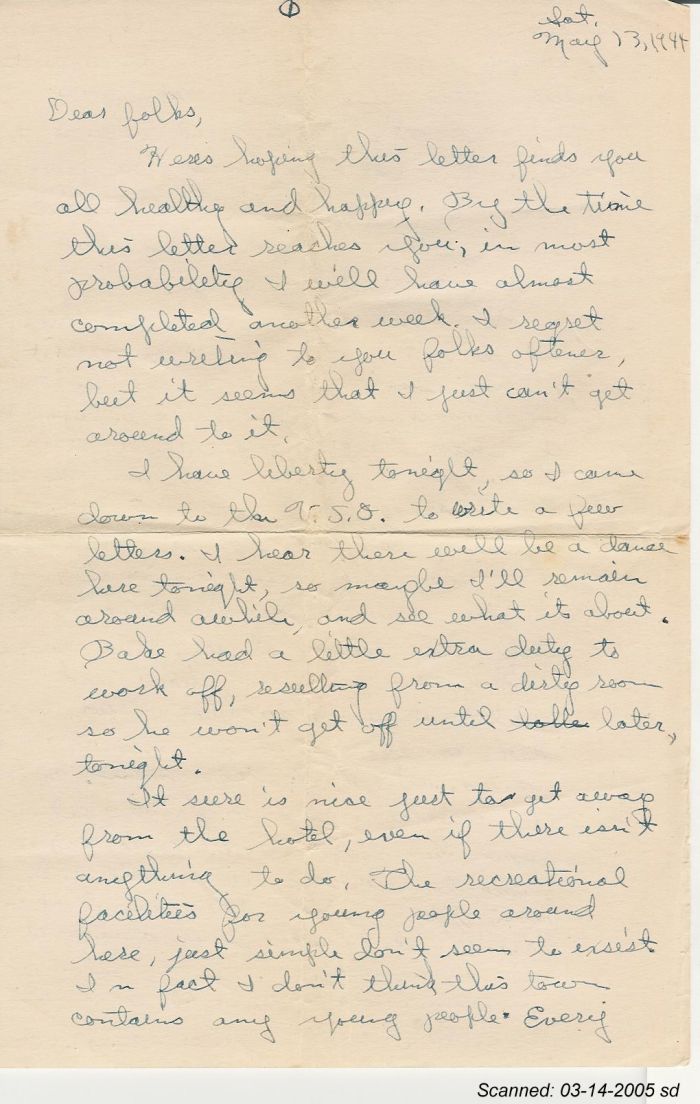 ①
Sat.
May 13, 1944
Dear folks,
Here's hoping this letter finds you
all healthy and happy. By the time
this letter reaches you, in most
probability I will have almost
completed another week. I regret
not writing to you folks oftener,
but it seems that I just can't get
around to it.
I have liberty tonight, so I came
down to the U.S.O. to write a few
letters. I hear there will be a dance
here tonight, so maybe I'll remain
around awhile, and see what it about.
Babe had a little extra duty to
work off, resulting from a dirty room
so he won't get off until later,
tonight.
It sure is nice just to get away
from the hotel, even if there isn't
anything to do. The recreational
facilities for young people around
here, just simple don't seem to exsist.
In fact I don't think this town
contains any young people. Every
Scanned: 03-14-2005 sd